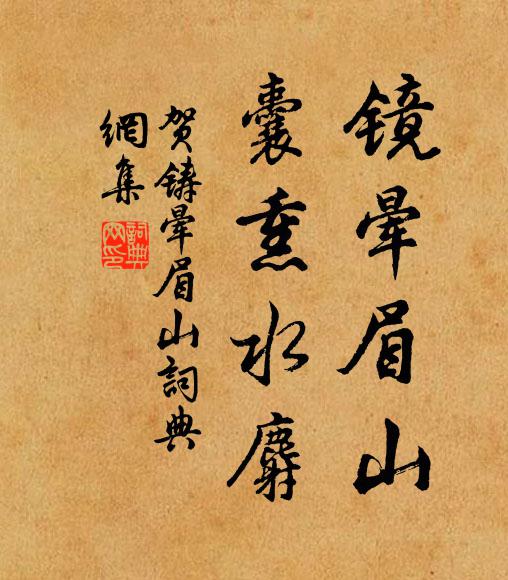 镜晕眉山
囊熏水麝
贺铸晕眉山词典
網集
詞典網印